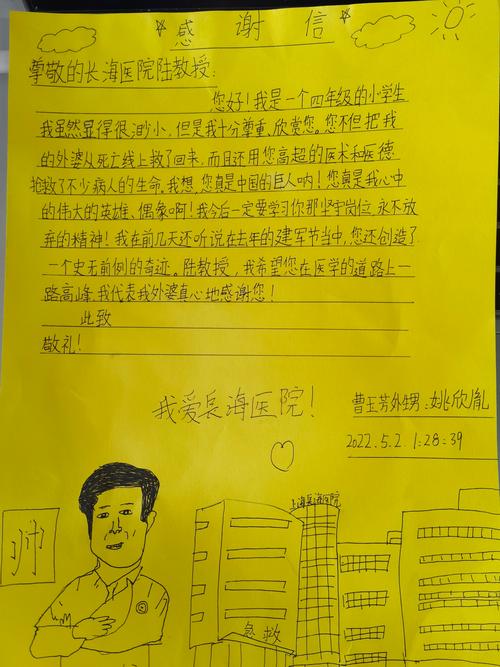 感谢信
尊敬的长海医院陆教授:
您好!我是一个四年级的小学生
我虽然显得很渺小,但是我十分尊重、欣赏您。您不但把我
的外婆从死亡线上救了回来,而且还用您高超的医术和医德
抢救了不少病人的生命。我想,您真是中国的巨人呐!您真是我心中
的伟大的英雄、偶像啊!我今后一定要学习你那坚守岗位,永不放
弃的精神!我在前几天还听说在去年的建军节当中,您还创造了
一个史无前例的奇迹。陆教授,我希望您在医学的道路上一
路高峰。我代表我外婆真心地感谢您!
此致
敬礼!
我爱长海医院!
曹玉芳外甥:姚欣胤
2022.5.2 1:28:39
上海长海医院
急救